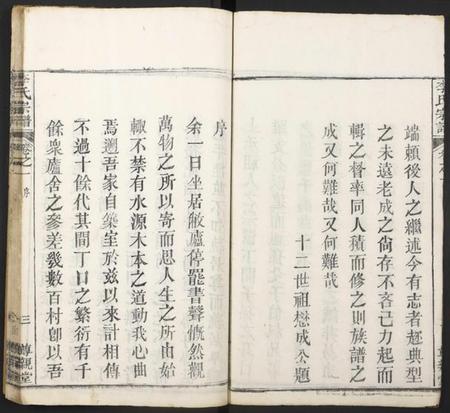 李氏宗譜
端賴後人之繼述今有志者趁典型
之未遠老成之尚存不吝己力起而
輯之督率同人積而修之則族譜之
成又何難哉又何難哉
十二世祖懋成公題
序
余一日坐居敝廬停罷書聲慨然觀
萬物之所以寄而思人生之所由始
輙不禁有水源木本之道動我心曲
焉遡吾家自築室於兹以來計相傳
不過十餘代其間丁口之繁衍有千
餘衆廬舍之參差幾數百村卽以吾
李氏宗譜
卷之一
序
三
尊親堂